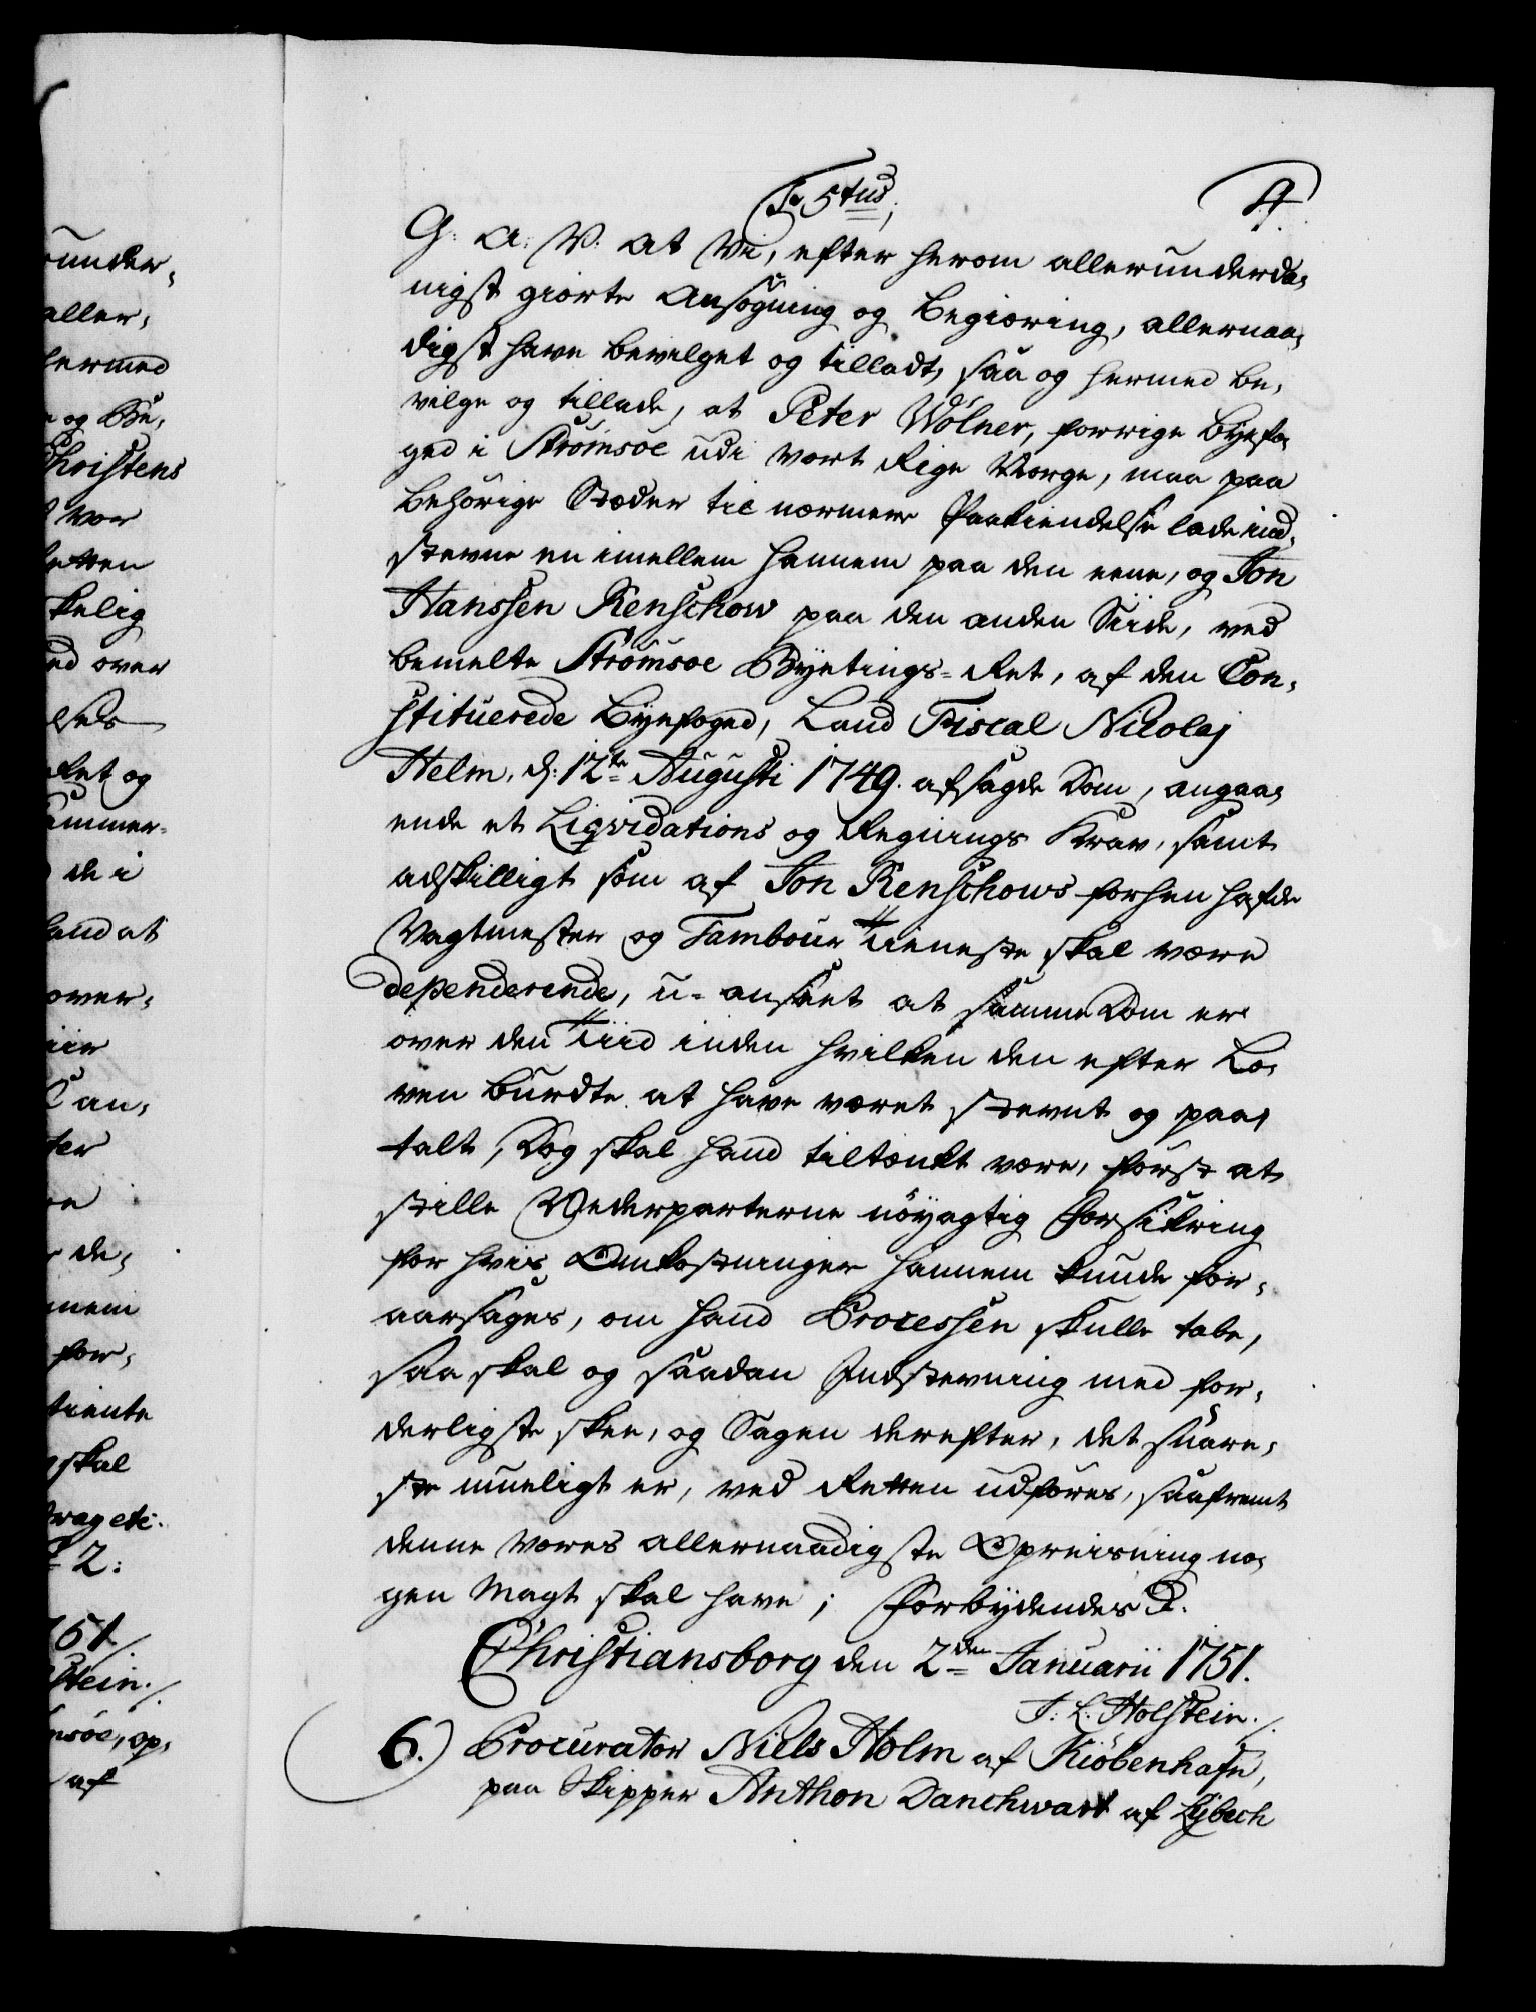 F. 5tus.
4
G: A: V. at Vi, efter herom allerunderda,
nigst giorte Ansøgning og Begiæring, allernaa,
digst have bevilget og tilladt, saa og hermed be,
vilge og tillade, at Peter Wölner, forrige Byefo,
ged i Strømsøe udi vort Rige Norge, maa paa
behørige Stæder til nærmere Paakiendelse lade ind,
stevne en imellem hannem paa den eene, og Jon
Hanssen Renschow paa den anden Siide, ved
bemelte Strømsøe Byetings-Ret, af den Con,
stituerede Byefoged, Land Fiscal Nicolaj
Helm, d: 12te Augusti 1749. afsagde Dom, angaa,
ende et Liqvidations og Regnings Krav, samt
adskilligt som af Jon Renschows forhen hafde
Vagtmester og Tambour Tieneste skal være
dependerende, u-anseet at samme Dom er
over den Tiid inden hvilken den efter Lo,
ven burdte at have været stevnt og paa,
talt, Dog skal hand tiltænkt være, først at
stille Vederparterne nøyagtig Forsikring
for hvis Omkostninger hannem kunde for,
aarsages, om hand Processen skulle tabe,
saa skal og saadan Indstevning med for,
derligste skee, og Sagen derefter, det snare,
ste mueligt er, ved Retten udføres, saafremt
denne vores allernaadigste Opreisning no,
gen Magt skal have; Forbydendes &.
Christiansborg den 2den Januarii 1751.
J. L. Holstein./.
6.) Procurator Niels Holm af Kiöbenhafn,
paa Skipper Anthon Danchwart af Lybech
under,
aller,
hermed
e og Be,
Christens
vor
Retten
kelig
ed over
Ret og
Cammer-
de i
hand at
over,
Can,
ter
de,
nnem
for,
tiente
skal
etc:
2:
751
stein./.
msøe, op,
af